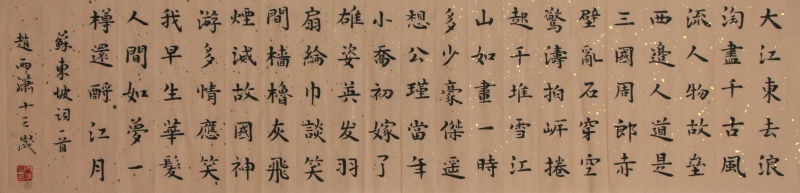 大江東去浪
淘盡千古風
流人物故壘
西邊人道是
三國周郎赤
壁亂石穿空
驚濤拍岸捲
起千堆雪江
山如畫一時
多少豪傑遥
想公瑾當年
小喬初嫁了
雄姿英发羽
扇綸巾談笑
間檣櫓灰飛
煙滅故國神
游多情應笑
我早生華髮
人間如夢一
樽還酹江月
蘇東坡詞一首
趙雨瀟十三歲